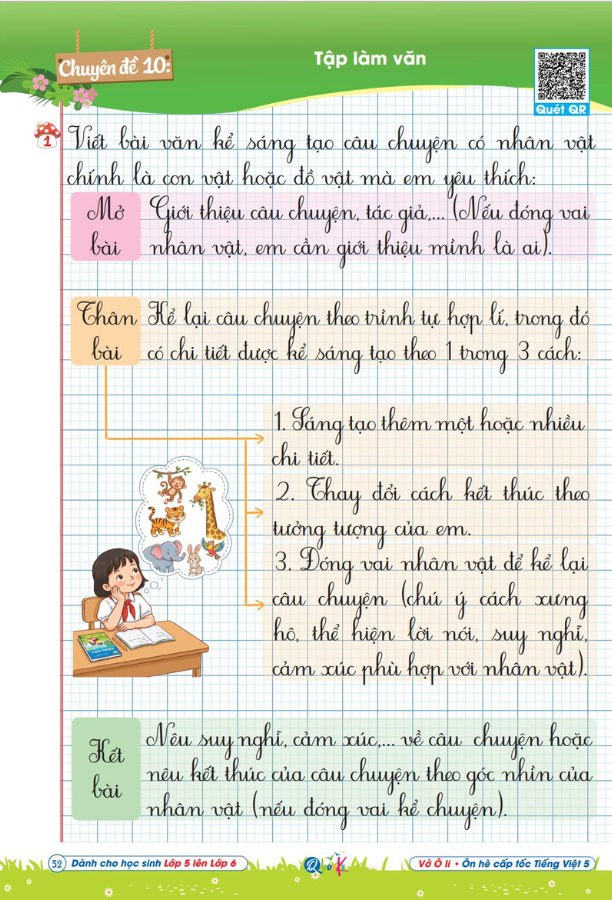 Chuyên đề 10:
Tập làm văn
Quét QR
1
Viết bài văn kể sáng tạo câu chuyện có nhân vật
chính là con vật hoặc đồ vật mà em yêu thích:
Mở
bài
Giới thiệu câu chuyện, tác giả,... (Nếu đóng vai
nhân vật, em cần giới thiệu mình là ai).
Thân
bài
Kể lại câu chuyện theo trình tự hợp lí, trong đó
có chi tiết được kể sáng tạo theo 1 trong 3 cách:
1. Sáng tạo thêm một hoặc nhiều
chi tiết.
2. Thay đổi cách kết thúc theo
tưởng tượng của em.
3. Đóng vai nhân vật để kể lại
câu chuyện (chú ý cách xưng
hô, thể hiện lời nói, suy nghĩ,
cảm xúc phù hợp với nhân vật).
Kết
bài
Nêu suy nghĩ, cảm xúc,... về câu chuyện hoặc
nêu kết thúc của câu chuyện theo góc nhìn của
nhân vật (nếu đóng vai kể chuyện).
52 Dành cho học sinh Lớp 5 lên Lớp 6
Vở Ô li • Ôn hè cấp tốc Tiếng Việt 5